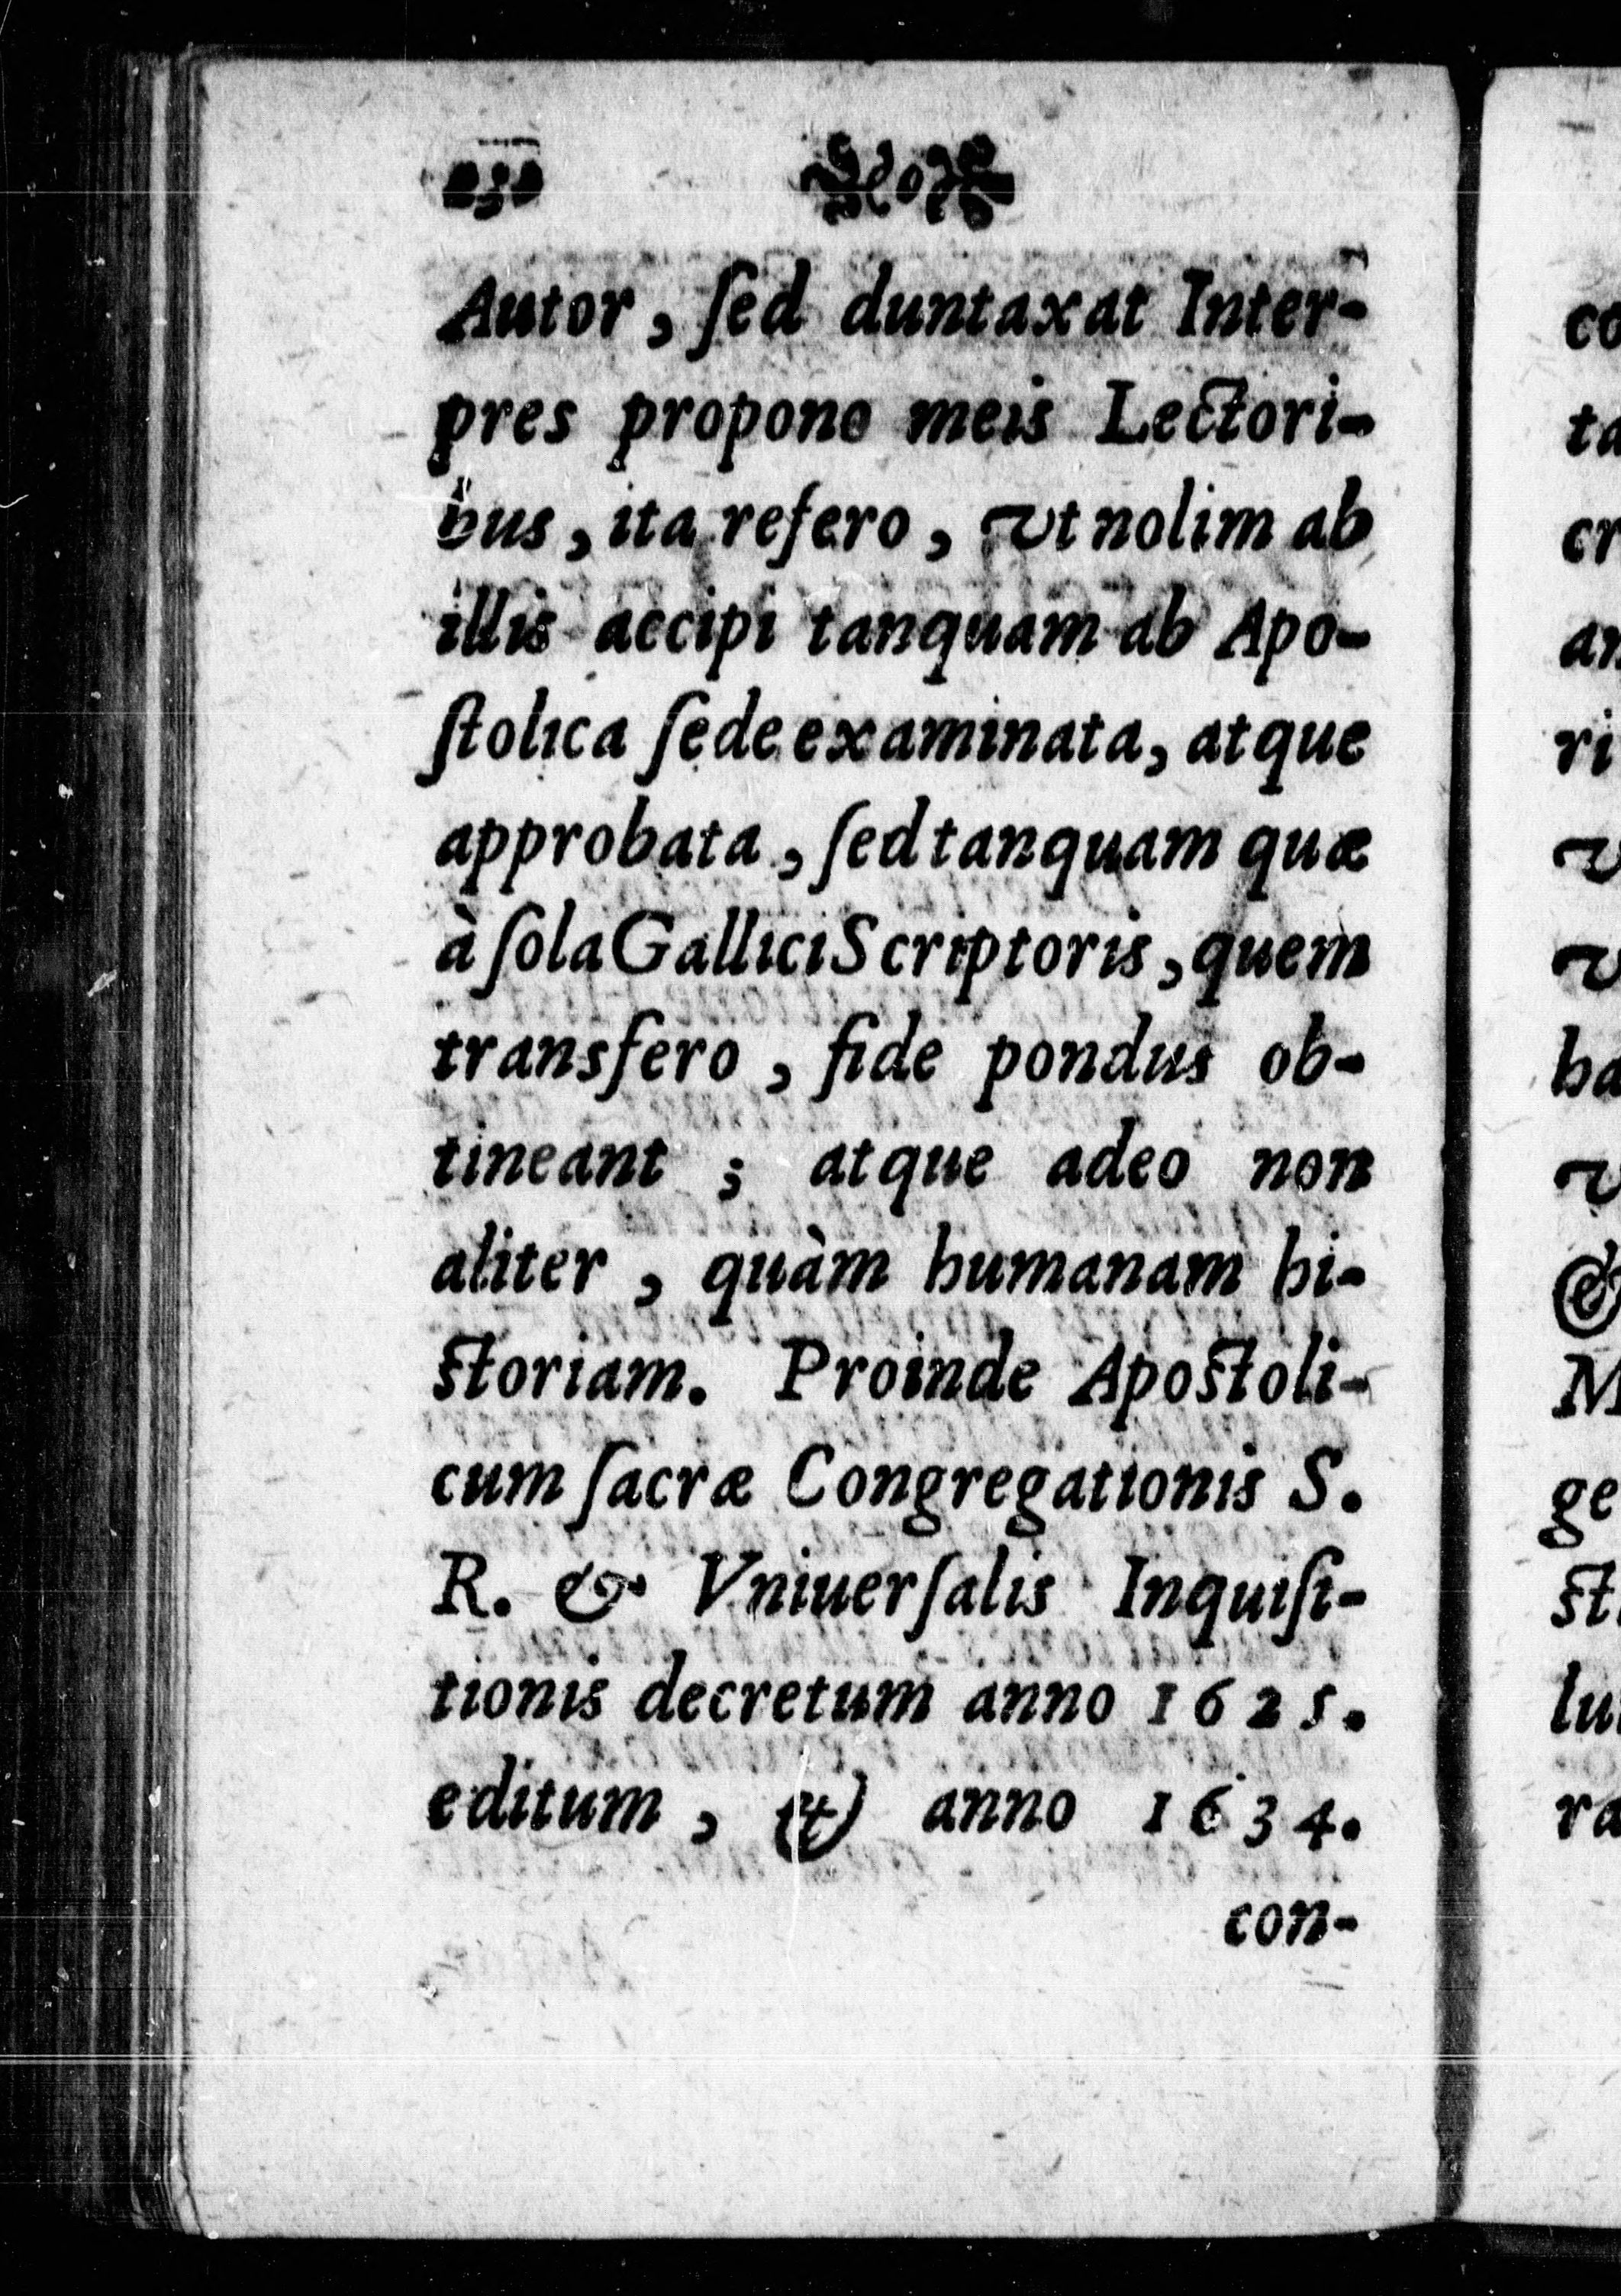 Autor, ſed duntaxat Inter-
pres propono meis Lectori-
bus, ita refero, vt nolim ab
illis accipi tanquam ab Apo-
ſtolica ſede examinata, atque
approbata, ſed tanquam quæ
à ſola Gallici Scriptoris, quem
transfero, fide pondus ob-
tineant ; atque adeo non
aliter, quàm humanam hi-
ſtoriam. Proinde Apoſtoli-
cum ſacræ Congregationis S.
R. & Vniuerſalis Inquiſi-
tionis decretum anno 1625.
editum, & anno 1634.
con-